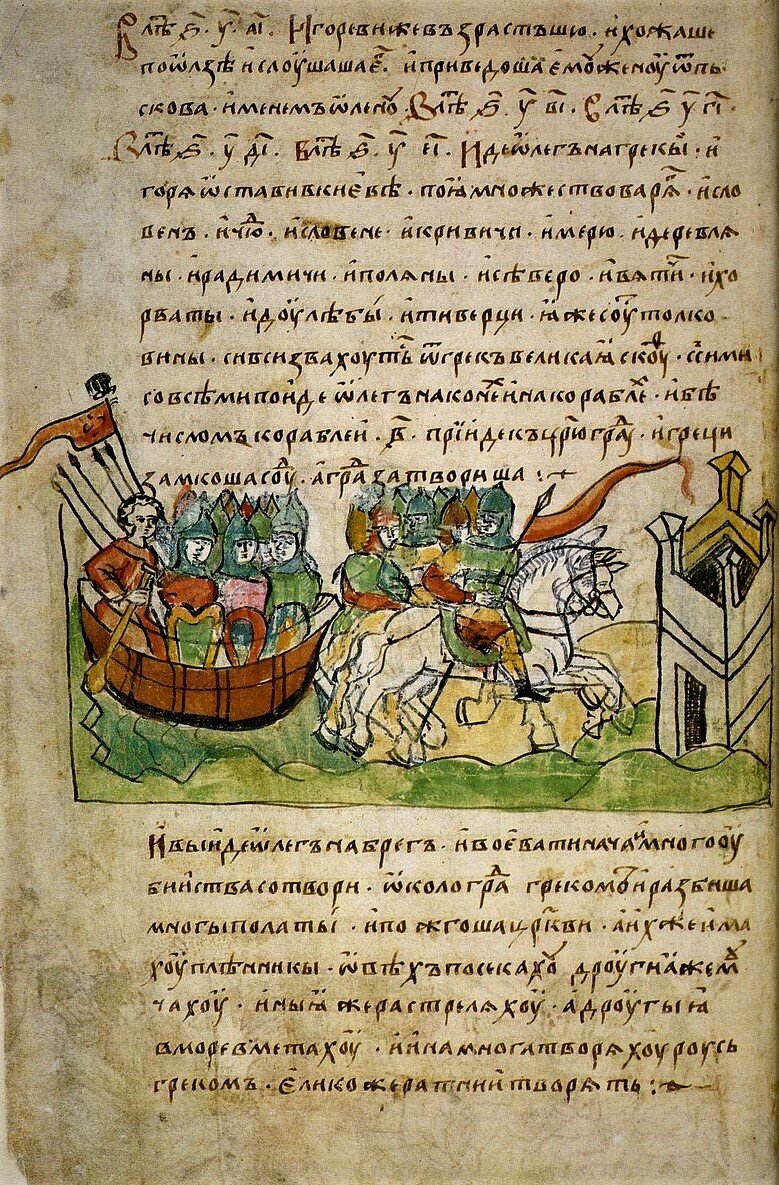 В лѣⷮ ҂ѕ҃ . у҃ . аі҃ . Игоревижевъзрастъшю . ихожаше
поѿлзѣ ислоушашаеⷢ . иприведошаемоуженоу ѿпь
скова . именемъѿленоу В лѣⷮ ҂ѕ҃ . у҃ ві҃ . В лѣⷮ ҂ѕ҃ у҃ гі҃ .
В лѣⷮ ҂ѕ҃ . у҃ ді҃ . В лѣⷮ ҂ѕ҃ . у҃ еі҃ . Идеѿлегънагрекы . и
горяѿставивкиевѣ . поꙗмножествоварѧⷢ . исло
венъ . ичюⷣ . исловене . икривичи . имерю . идеревлѧ
ны . ирадимичи . иполѧны . исѣверо . ивѧтичи . ихо
рваты . идоулѣбы . итиверци . ꙗжесоуⷮтолко
вины . сивсизвахоутьⷭ ѿгрекъвеликаꙗскоуⷴ . ссими
совсѣмипоидеѿлегънаконеⷯинакораблеⷯ . ибѣ
числомъкораблеи . в҃ . прїидекъцр҃юграⷣу . игреци
замкошасоуⷣ . аграⷣзатвориша :
Ивыидеѿлегънабрегъ . ивоеватинача имногооу
бииствасотвори . ѿколограⷣа грекомъ иразбиша
многыполаты . ипожгошацр҃кви . аихжеима
хоуплѣнникы . ѿвѣхъпосекахоу дроугиꙗжемꙋ
чахоу . иныꙗжерастрелѧхоу . адроугыꙗ
вморевметахоу . иинамногатворѧхоуроусь
грекомъ . еликожератниитворѧть :